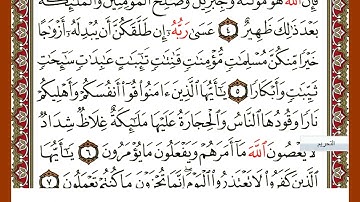 فَإِنَّ ٱللَّهَ هُوَ مَوْلَىٰهُ وَجِبْرِيلُ وَصَٰلِحُ ٱلْمُؤْمِنِينَ وَٱلْمَلَٰٓئِكَةُ
بَعْدَ ذَٰلِكَ ظَهِيرٌ ٤ عَسَىٰ رَبُّهُۥٓ إِن طَلَّقَكُنَّ أَن يُبْدِلَهُۥٓ أَزْوَٰجًا
خَيْرًا مِّنكُنَّ مُسْلِمَٰتٍ مُّؤْمِنَٰتٍ قَٰنِتَٰتٍ تَٰٓئِبَٰتٍ عَٰبِدَٰتٍ سَٰٓئِحَٰتٍ
ثَيِّبَٰتٍ وَأَبْكَارًا ٥ يَٰٓأَيُّهَا ٱلَّذِينَ ءَامَنُوا۟ قُوٓا۟ أَنفُسَكُمْ وَأَهْلِيكُمْ
نَارًا وَقُودُهَا ٱلنَّاسُ وَٱلْحِجَارَةُ عَلَيْهَا مَلَٰٓئِكَةٌ غِلَاظٌ شِدَادٌ
لَّا يَعْصُونَ ٱللَّهَ مَآ أَمَرَهُمْ وَيَفْعَلُونَ مَا يُؤْمَرُونَ ٦ يَٰٓأَيُّهَا
ٱلَّذِينَ كَفَرُوا۟ لَا تَعْتَذِرُوا۟ ٱلْيَوْمَ إِنَّمَا تُجْزَوْنَ مَا كُنتُمْ تَعْمَلُونَ ٧
التحريم